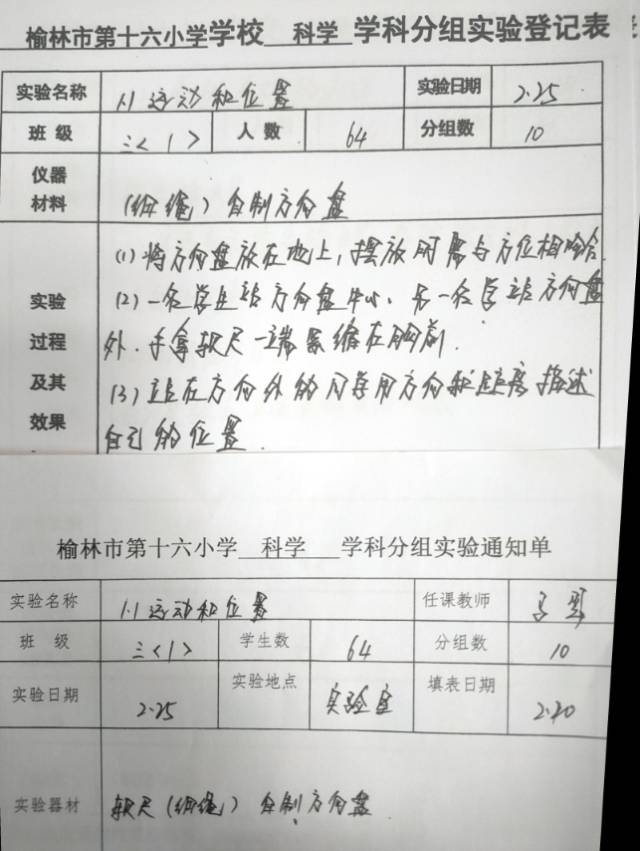 榆林市第十六小学学校 科学 学科分组实验登记表
实验名称 1.1 运动和位置 实验日期 2.25
班 级 三<1> 人 数 64 分组数 10
仪器
材料 (细绳) 自制方向盘
实验
过程
及其
效果
(1) 将方向盘放在地上,摆放时需与方位相吻合.
(2) 一名学生站方向盘中心、另一名学站方向盘
外.手拿软尺一端紧缩在胸前.
(3) 站在方向外的同学用方向和距离描述
自己的位置.
榆林市第十六小学 科学 学科分组实验通知单
实验名称 1.1 运动和位置 任课教师
班 级 三<1> 学生数 64 分组数 10
实验日期 2.25 实验地点 实验室 填表日期 2.20
实验器材 软尺 (细绳) 自制方向盘